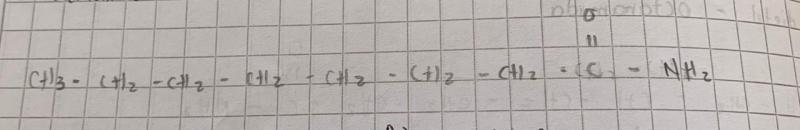 O
||
CH3 - CH2 - CH2 - CH2 - CH2 - CH2 - CH2 - C - NH2